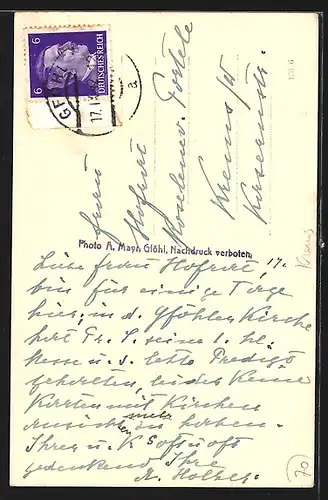 6 6
DEUTSCHES REICH
17.
a
Frau
Hofrat
Krems
Photo A. Mayr, Gföhl, Nachdruck verboten
Liebe Frau Hofrat, 17.
bin für einige Tage
hier, in d. Gföhler Kirche
hat Fr. S. seine 1. hl.
Messe u. s. letzte Predigt
gehalten, leider keine
Karten mit Kirchen
ansichten mehr zu haben.
Ihrer u. K so oft
gedenkend Ihre
Krems
70